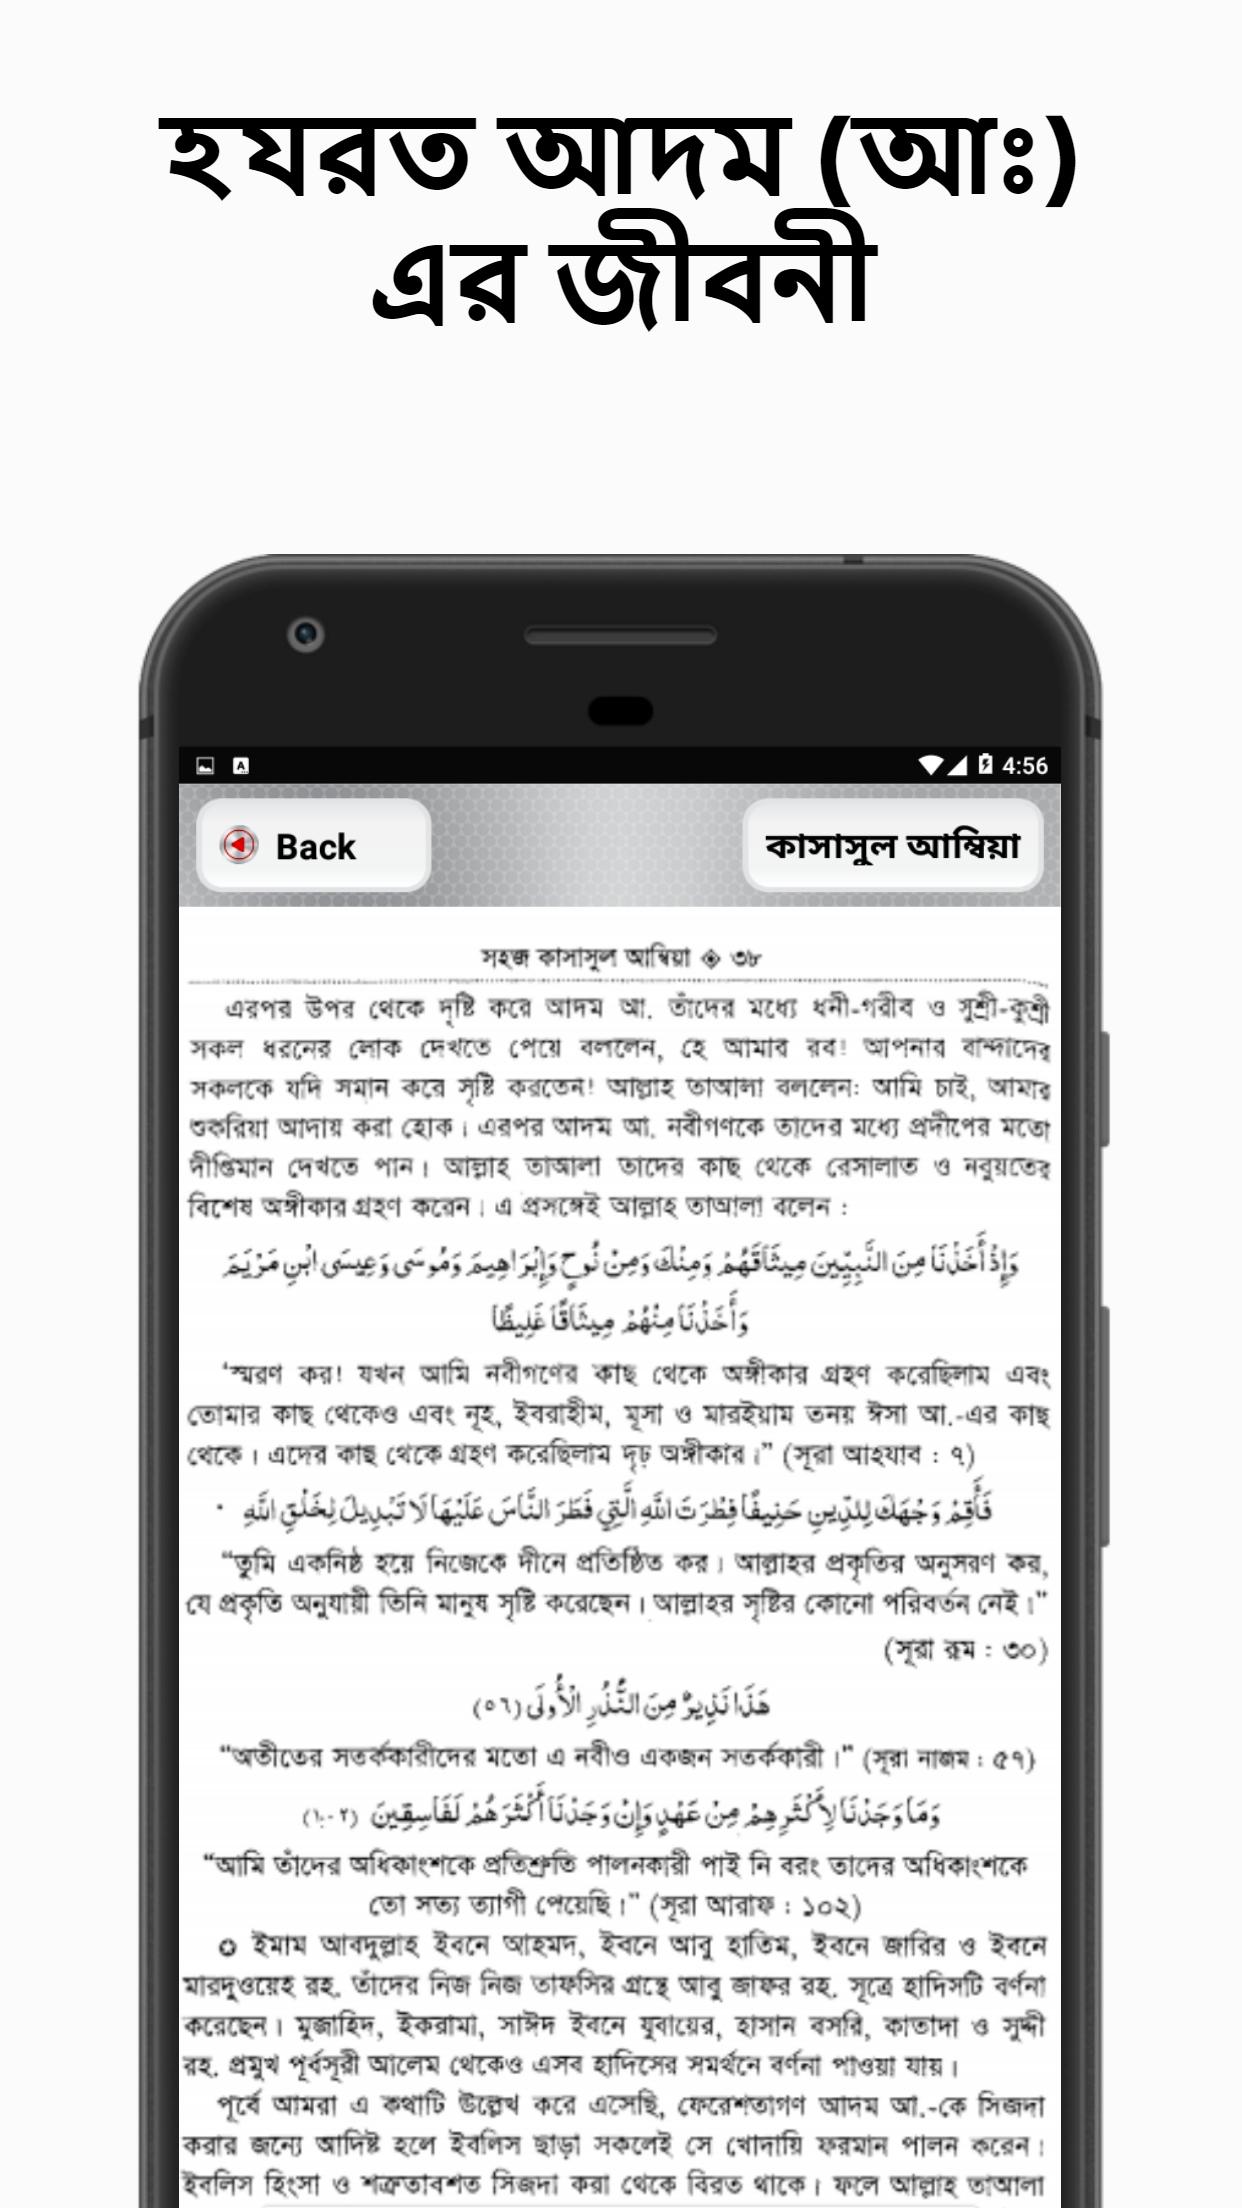 হযরত আদম (আঃ)
এর জীবনী
4:56
Back
কাসাসুল আম্বিয়া
সহজ কাসাসুল আম্বিয়া ◈ ৩৮
এরপর উপর থেকে দৃষ্টি করে আদম আ. তাঁদের মধ্যে ধনী-গরীব ও সুশ্রী-কুশ্রী
সকল ধরনের লোক দেখতে পেয়ে বললেন, হে আমার রব! আপনার বান্দাদের
সকলকে যদি সমান করে সৃষ্টি করতেন! আল্লাহ তাআলা বললেন: আমি চাই, আমার
শুকরিয়া আদায় করা হোক। এরপর আদম আ. নবীগণকে তাদের মধ্যে প্রদীপের মতো
দীপ্তিমান দেখতে পান। আল্লাহ তাআলা তাদের কাছ থেকে রেসালাত ও নবুয়তের
বিশেষ অঙ্গীকার গ্রহণ করেন। এ প্রসঙ্গেই আল্লাহ তাআলা বলেন :
وَإِذْ أَخَذْنَا مِنَ النَّبِيِّينَ مِيثَاقَهُمْ وَمِنْكَ وَمِنْ نُوحٍ وَإِبْرَاهِيمَ وَمُوسَى وَعِيسَى ابْنِ مَرْيَمَ
وَأَخَذْنَا مِنْهُمْ مِيثَاقًا غَلِيظًا
‘স্মরণ কর! যখন আমি নবীগণের কাছ থেকে অঙ্গীকার গ্রহণ করেছিলাম এবং
তোমার কাছ থেকেও এবং নূহ, ইবরাহীম, মূসা ও মারইয়াম তনয় ঈসা আ.-এর কাছ
থেকে। এদের কাছ থেকে গ্রহণ করেছিলাম দৃঢ় অঙ্গীকার।” (সূরা আহযাব : ৭)
فَأَقِمْ وَجْهَكَ لِلدِّينِ حَنِيفًا فِطْرَتَ اللَّهِ الَّتِي فَطَرَ النَّاسَ عَلَيْهَا لَا تَبْدِيلَ لِخَلْقِ اللَّهِ
“তুমি একনিষ্ঠ হয়ে নিজেকে দীনে প্রতিষ্ঠিত কর। আল্লাহর প্রকৃতির অনুসরণ কর,
যে প্রকৃতি অনুযায়ী তিনি মানুষ সৃষ্টি করেছেন। আল্লাহর সৃষ্টির কোনো পরিবর্তন নেই।”
(সূরা রূম : ৩০)
هَذَا نَذِيرٌ مِنَ النُّذُرِ الْأُولَى (٥٦)
“অতীতের সতর্ককারীদের মতো এ নবীও একজন সতর্ককারী।” (সূরা নাজম : ৫৭)
وَمَا وَجَدْنَا لِأَكْثَرِهِمْ مِنْ عَهْدٍ وَإِنْ وَجَدْنَا أَكْثَرَهُمْ لَفَاسِقِينَ (١٠٢)
“আমি তাঁদের অধিকাংশকে প্রতিশ্রুতি পালনকারী পাই নি বরং তাদের অধিকাংশকে
তো সত্য ত্যাগী পেয়েছি।” (সূরা আরাফ : ১০২)
✪ ইমাম আবদুল্লাহ ইবনে আহমদ, ইবনে আবু হাতিম, ইবনে জারির ও ইবনে
মারদুওয়েহ রহ. তাঁদের নিজ নিজ তাফসির গ্রন্থে আবু জাফর রহ. সূত্রে হাদিসটি বর্ণনা
করেছেন। মুজাহিদ, ইকরামা, সাঈদ ইবনে যুবায়ের, হাসান বসরি, কাতাদা ও সুদ্দী
রহ. প্রমুখ পূর্বসূরী আলেম থেকেও এসব হাদিসের সমর্থনে বর্ণনা পাওয়া যায়।
পূর্বে আমরা এ কথাটি উল্লেখ করে এসেছি, ফেরেশতাগণ আদম আ.-কে সিজদা
করার জন্যে আদিষ্ট হলে ইবলিস ছাড়া সকলেই সে খোদায়ি ফরমান পালন করেন।
ইবলিস হিংসা ও শত্রুতাবশত সিজদা করা থেকে বিরত থাকে। ফলে আল্লাহ তাআলা